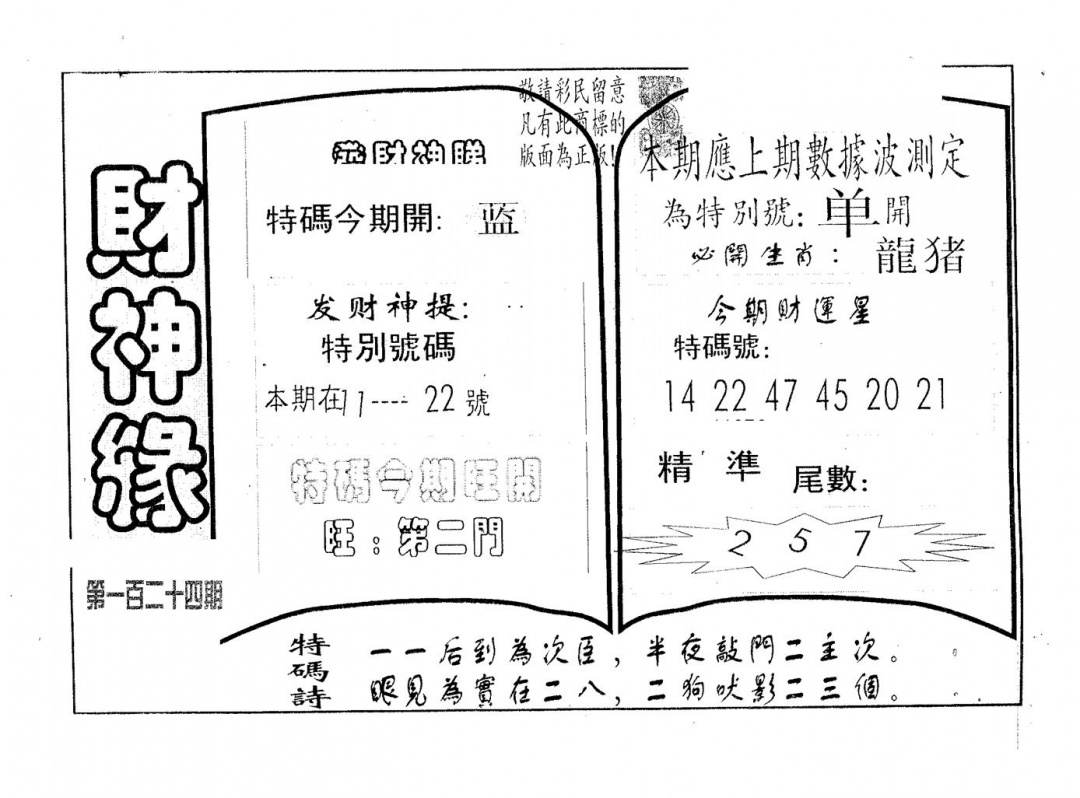 財神緣
第一百二十四期
敬請彩民留意
凡有此商標的
版面為正版!
特碼今期開: 蓝
发财神提:
特別號碼
本期在11----22號
特碼今期旺開
旺:第二門
本期應上期數據波測定
為特別號:单開
必開生肖:龍猪
今期財運星
特碼號:
14 22 47 45 20 21
精準 尾數:
2 5 7
特碼詩
一一后到為次臣,半夜敲門二主次。
眼見為實在二八,二狗吠影二三個。